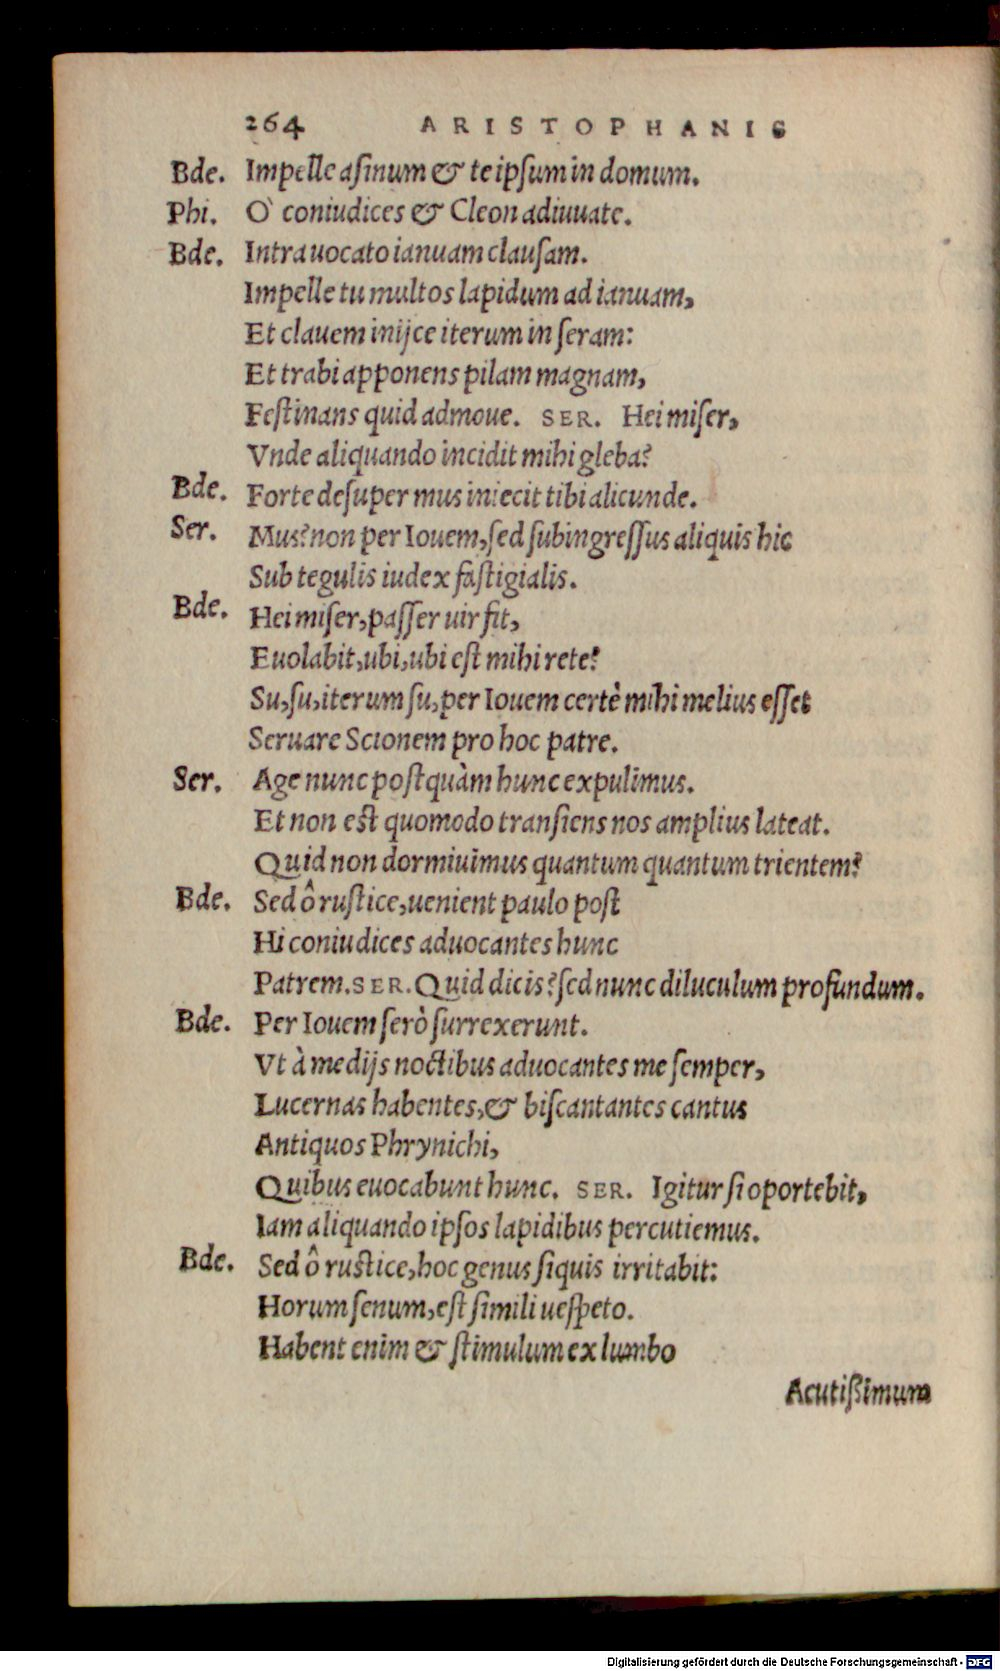 264 ARISTOPHANIS
Bde. Impelle asinum & te ipsum in domum.
Phi. O` coniudices & Cleon adiuuate.
Bde. Intra uocato ianuam clausam.
Impelle tu multos lapidum ad ianuam,
Et clauem inijce iterum in seram:
Et trabi apponens pilam magnam,
Festinans quid admoue. SER. Hei miser,
Vnde aliquando incidit mihi gleba?
Bde. Forte desuper mus iniecit tibi alicunde.
Ser. Mus? non per Iouem, sed subingressus aliquis hic
Sub tegulis iudex fastigialis.
Bde. Hei miser, passer uir fit,
Euolabit, ubi, ubi est mihi rete?
Su, su, iterum su, per Iouem certè mihi melius esset
Seruare Scionem pro hoc patre.
Ser. Age nunc postquàm hunc expulimus.
Et non est quomodo transiens nos amplius lateat.
Quid non dormiuimus quantum quantum trientem?
Bde. Sed ô rustice, uenient paulo post
Hi coniudices aduocantes hunc
Patrem. SER. Quid dicis? sed nunc diluculum profundum.
Bde. Per Iouem serò surrexerunt.
Vt à medijs noctibus aduocantes me semper,
Lucernas habentes, & biscantantes cantus
Antiquos Phrynichi,
Quibus euocabunt hunc. SER. Igitur si oportebit,
Iam aliquando ipsos lapidibus percutiemus.
Bde. Sed ô rustice, hoc genus siquis irritabit:
Horum senum, est simili uespeto.
Habent enim & stimulum ex lumbo
Acutißimum
Digitalisierung gefördert durch die Deutsche Forschungsgemeinschaft - DFG